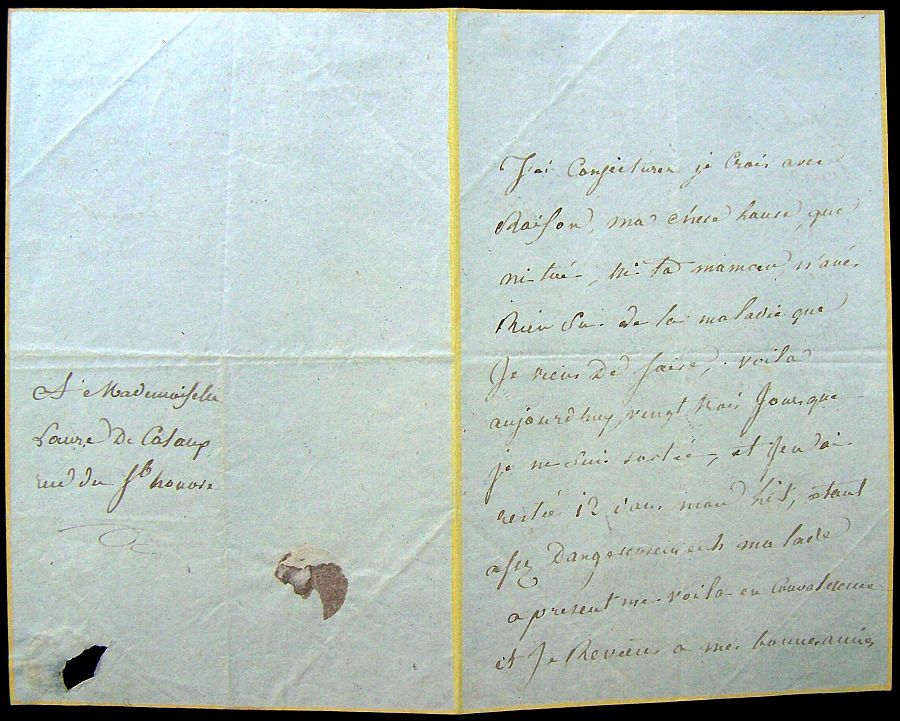 A Mademoiselle
Laure De Casaux
rue du fb honoré
J'ai Conjecturer je Crois avec
Raison, ma chere Laure, que
ni tué, ni ta maman, n'avés
Rien Sui de la maladie que
Je viens De faire, voila
aujourdhuy vingt trois Jours que
je ne suis sortie, et J'en ai
restée 12 dans mon Lit, étant
assez Dangereusement malade
a présent me voila en Convalescence
et Je Reviens a mes bonnes amies